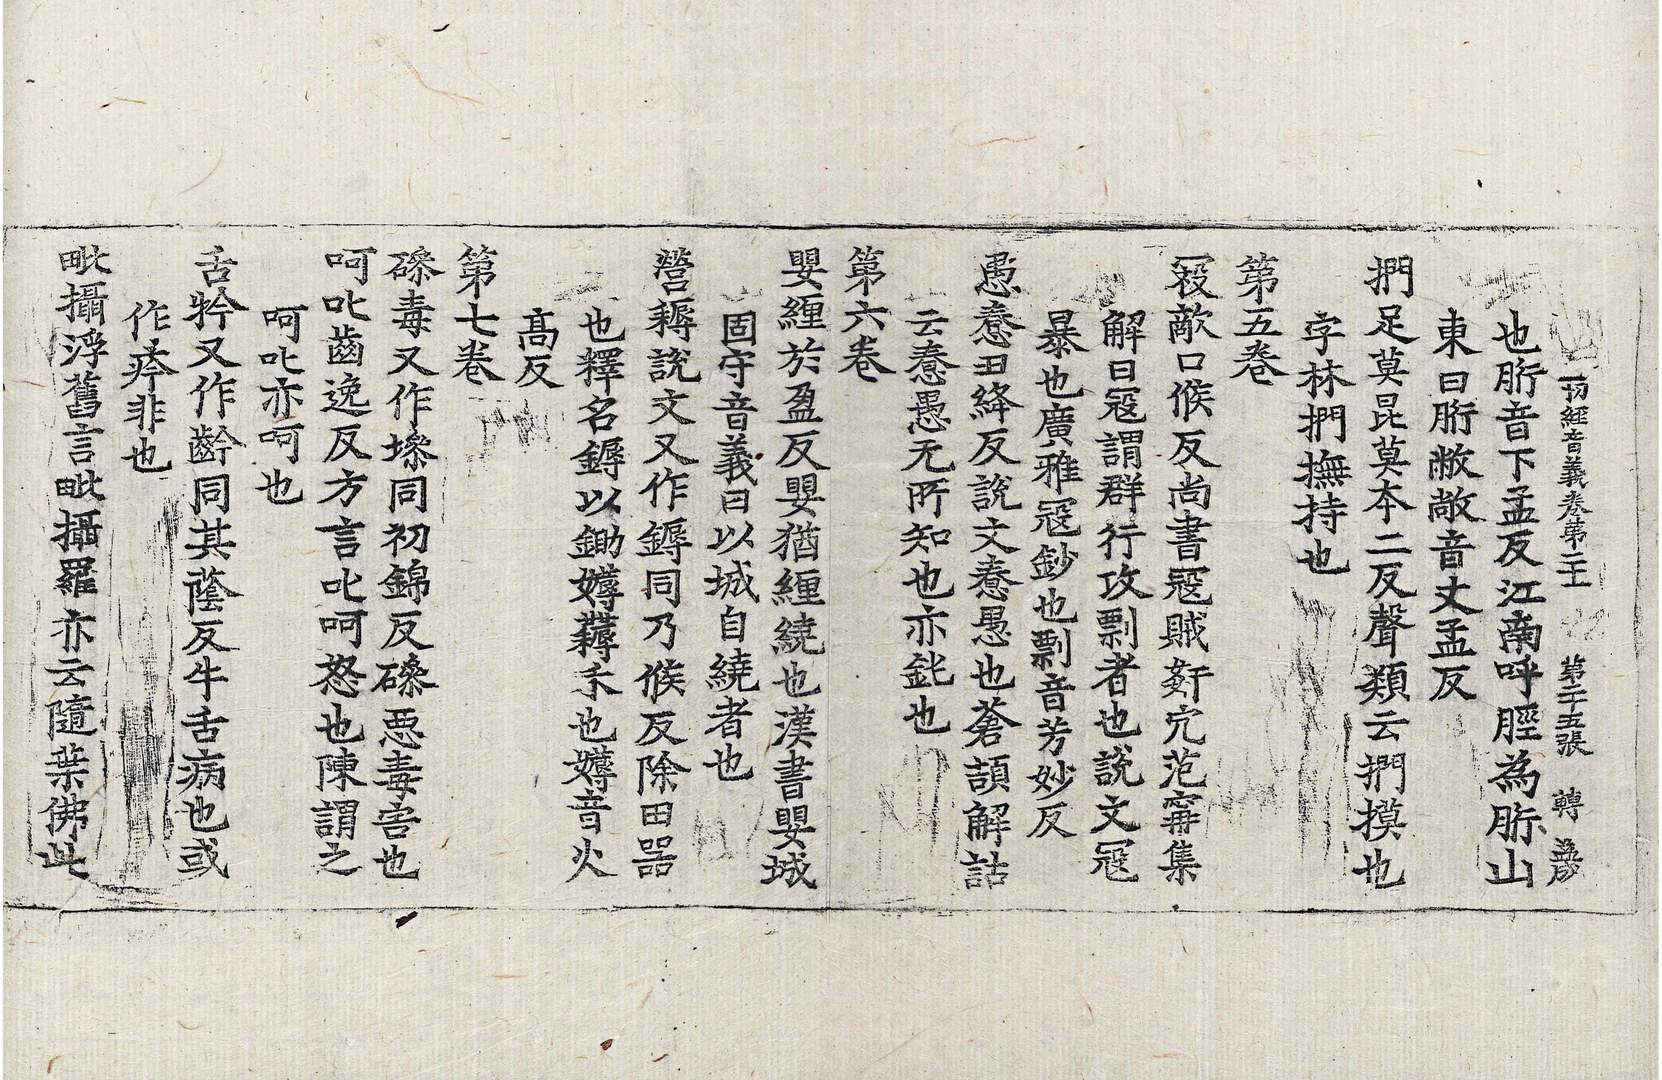 一切經音義卷第二十 第二十五張 轉 㣇
也胻音下孟反江南呼脛為胻山
東曰胻敝敞音丈孟反
捫足莫昆莫本二反聲類云捫摸也
字林捫撫持也
第五卷
寇敵口候反尚書寇賊姧宄范甯集
解曰寇謂群行攻剽者也說文寇
暴也廣雅寇鈔也剽音芳妙反
愚惷丑絳反說文惷愚也蒼頡解詁
云惷愚无所知也亦鈍也
第六卷
嬰纏於盈反嬰猶纏繞也漢書嬰城
固守音義曰以城自繞者也
營耨說文又作鎒同乃候反除田器
也釋名鎒以鋤媷耨禾也媷音火
高反
第七卷
磣毒又作墋同初錦反磣惡毒害也
呵叱齒逸反方言叱呵怒也陳謂之
呵叱亦呵也
舌㸫又作齡同其蔭反牛舌病也或
作㾕非也
毗攝浮舊言毗攝羅亦云隨葉佛此